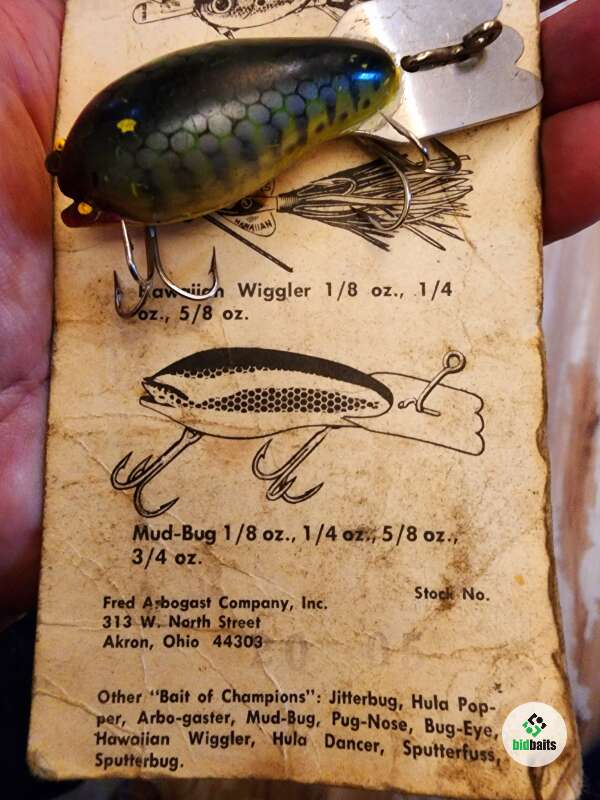 HAWAIIAN
Hawaiian Wiggler 1/8 oz., 1/4
oz., 5/8 oz.
Mud-Bug 1/8 oz., 1/4 oz., 5/8 oz.,
3/4 oz.
Fred Arbogast Company, Inc.
313 W. North Street
Akron, Ohio 44303
Stock No.
Other "Bait of Champions": Jitterbug, Hula Pop-
per, Arbo-gaster, Mud-Bug, Pug-Nose, Bug-Eye,
Hawaiian Wiggler, Hula Dancer, Sputterfuss,
Sputterbug.
bidbaits